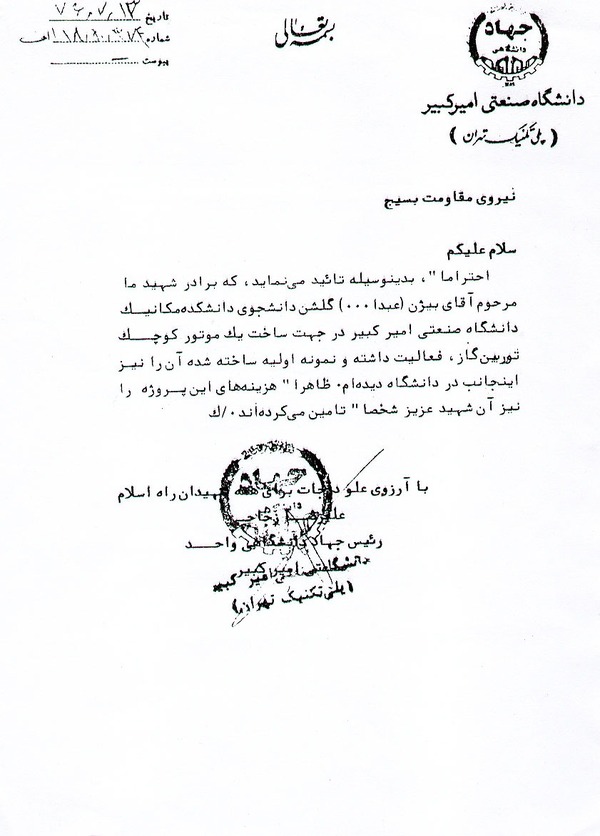 بسمه تعالی
تاریخ
شماره
پیوست
جهاد
دانشگاهی
دانشگاه صنعتی امیرکبیر
( پلی تکنیک تهران )
نیروی مقاومت بسیج
سلام علیکم
احتراما "، بدینوسیله تائید می‌نماید، که برادر شهید ما
مرحوم آقای بیژن (عبدا ۰۰۰) گلشن دانشجوی دانشکده مکانیک
دانشگاه صنعتی امیر کبیر در جهت ساخت یك موتور کوچک
توربین‌گاز، فعالیت داشته و نمونه اولیه ساخته شده آن را نیز
اینجانب در دانشگاه دیده‌ام۰ ظاهرا " هزینه‌های این پروژه را
نیز آن شهید عزیز شخصا " تامین می‌کرده‌اند۰/ك
با آرزوی علو درجات برای همه شهیدان راه اسلام
رئیس جهاد دانشگاهی واحد
دانشگاه صنعتی امیر کبیر
(پلی تکنیک تهران)